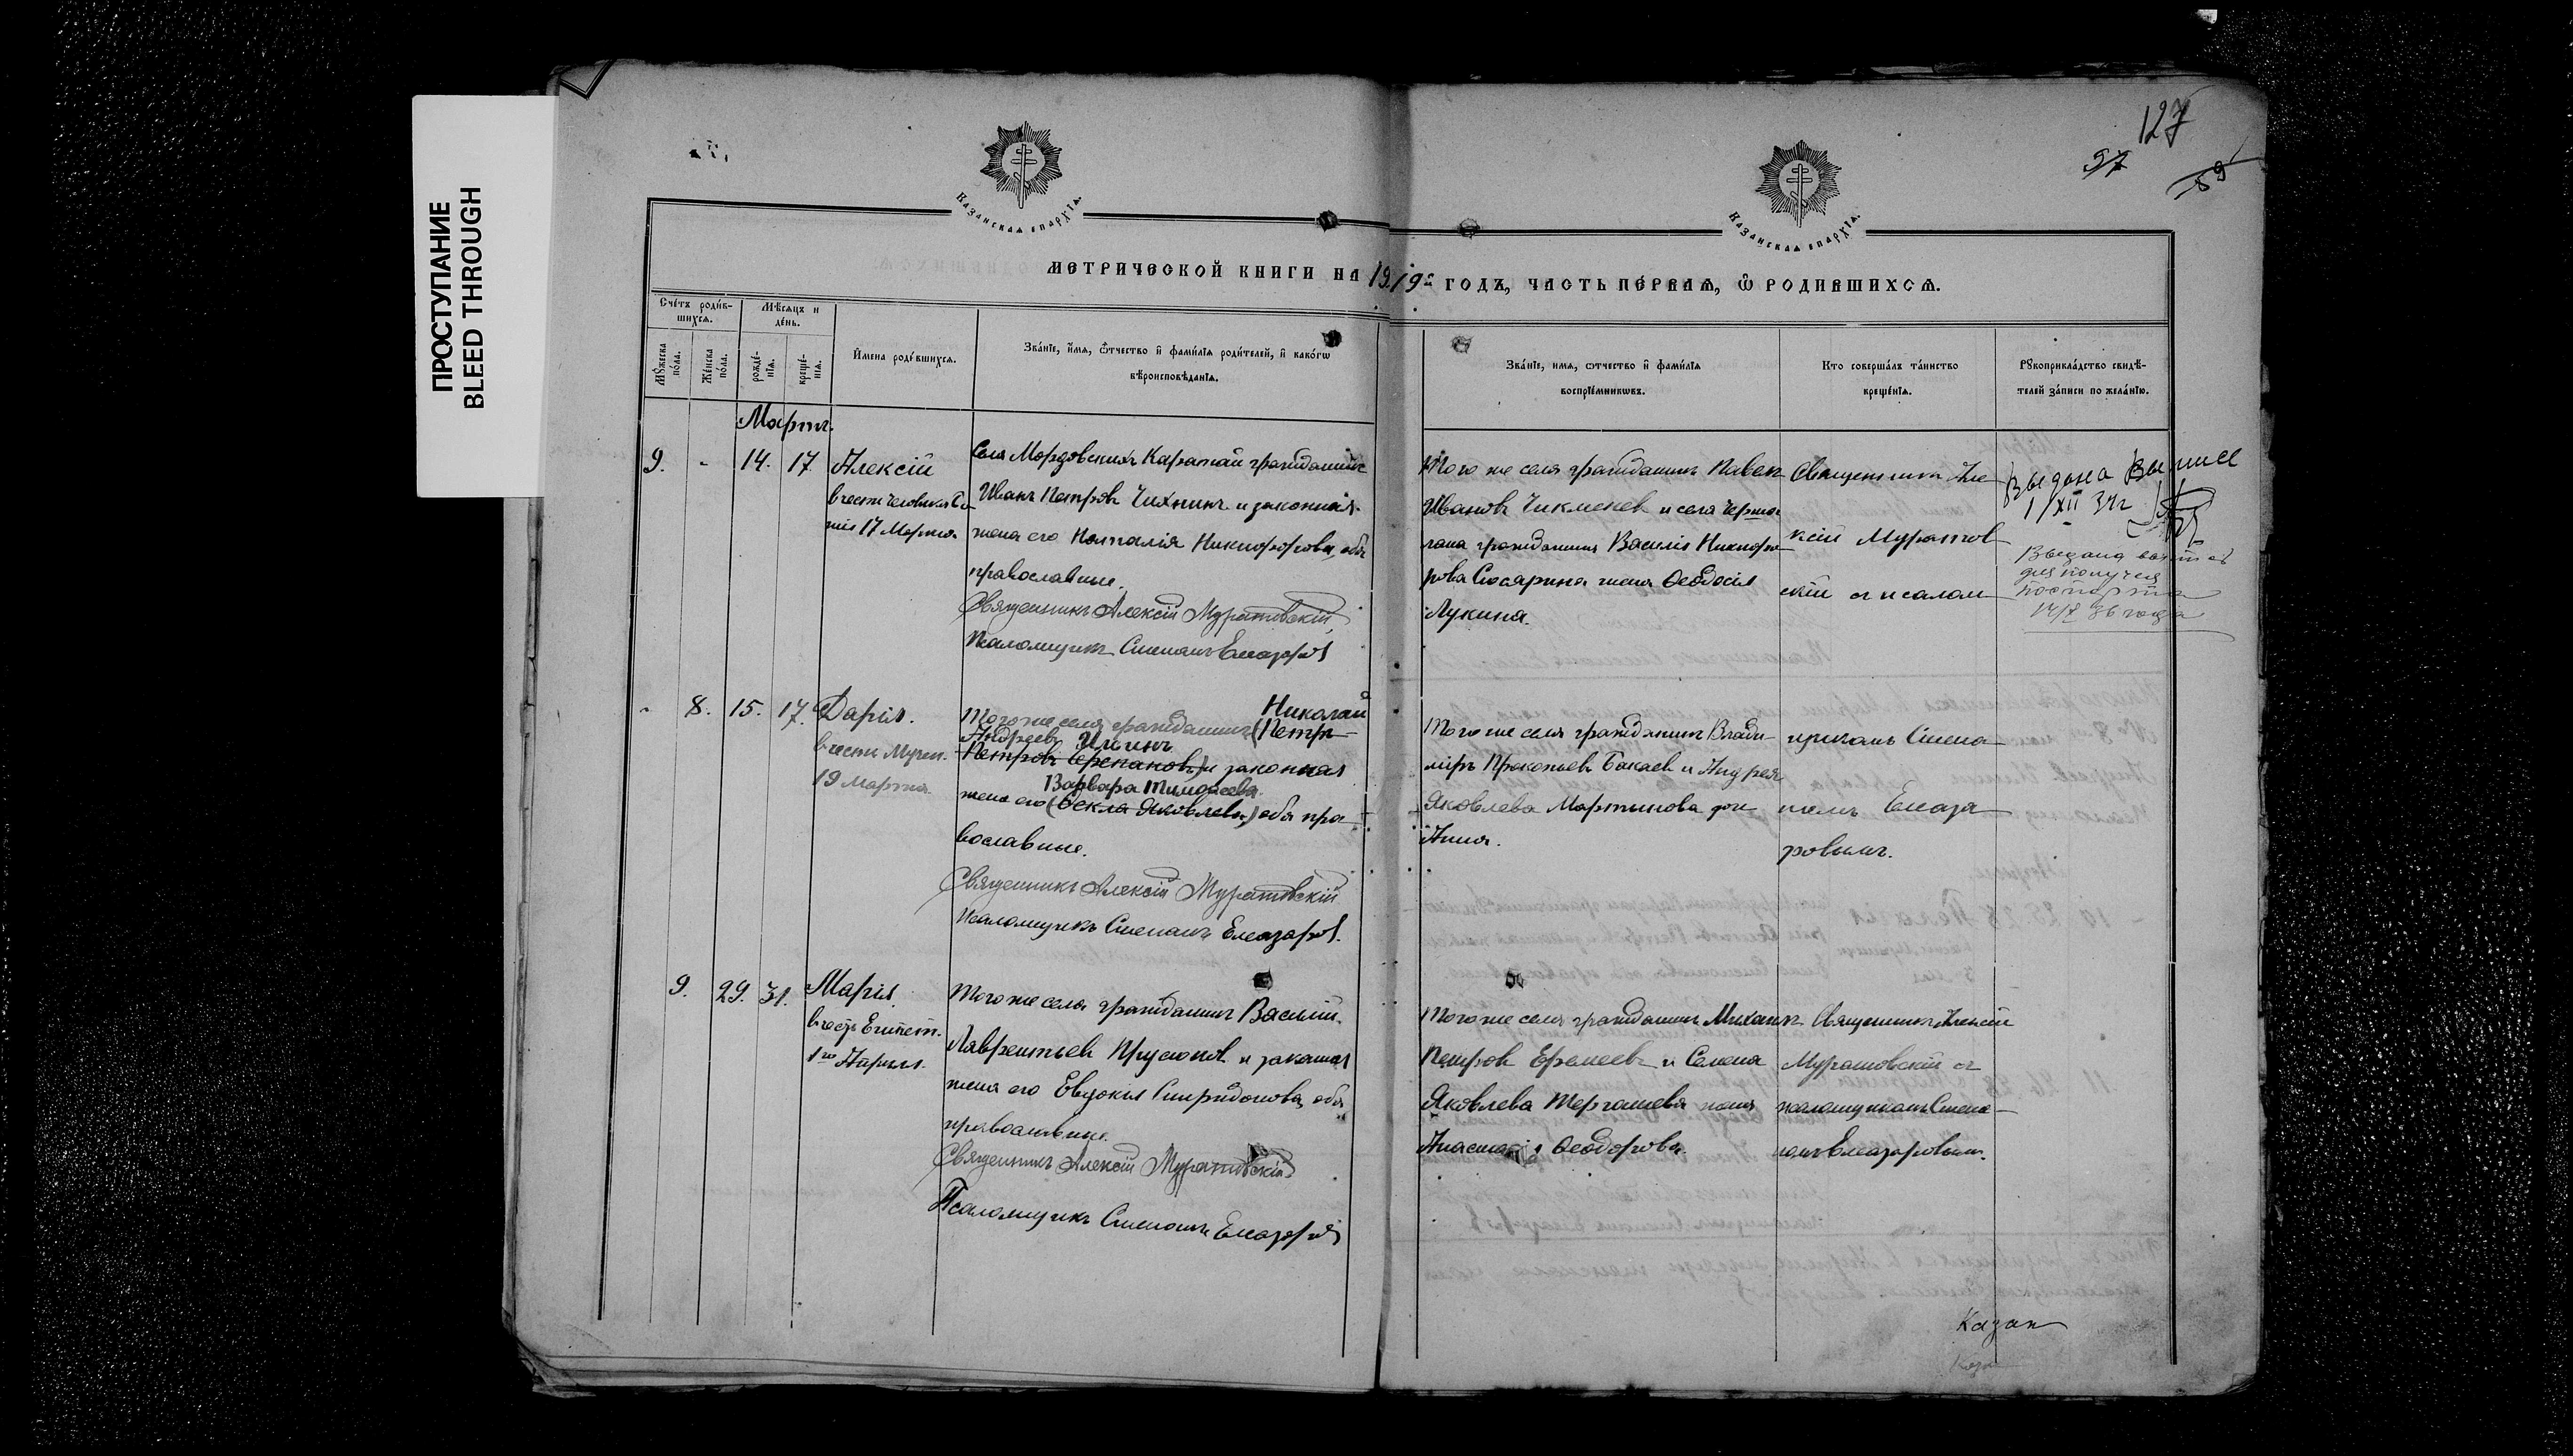 ПРОСТУПАНИЕ
BLEED THROUGH
127
97
59
Казанская епархія.
Казанская епархія.
МЕТРИЧЕСКОЙ КНИГИ НА 1919 ГОДЪ, ЧАСТЬ ПЕРВАЯ, Ѿ РОДИВШИХСЯ.
Счетъ родив-
шихся.
Мѣсяцъ и
день.
Мужеска
пола.
Женска
пола.
рожде-
нія.
креще-
нія.
Имена родившихся.
Званіе, имя, Ѿчество и фамилія родителей, и какогѡ
вѣроисповѣданія.
Званіе, имя, ѿчество и фамилія
воспріемникѡвъ.
Кто совершалъ таинство
крещенія.
Рꙋкоприкладство свидѣ-
телей записи по желанію.
Мартъ.
9. - 14. 17. Алексій
17 Марта.
Села Мордовскихъ Каратай гражданинъ
Иванъ Петровъ Чихнинъ и законная
жена его Наталія Никифорова, оба
православные.
Священникъ Алексій Муратовскій
Псаломщикъ Степанъ Елеазаровъ
Того же села гражданинъ Павелъ
Ивановъ Чикменев и села
гражданина Василія Никифо-
рова жена Ѳеодосія
Лукина.
Священникъ Але
ксій Муратов
скій съ псалом
Выдана
1/XII 34г
Выдана
для получен
паспорта
36 года
- 8. 15. 17. Дарія.
в честь Мучен.
19 марта.
Николай
Того же села гражданинъ (Петръ
Андреевъ Илгинъ
Петровъ Черепановъ) и законная
Варвара Тимоѳеева
жена его (Ѳекла Яковлева) оба пра
вославные.
Священникъ Алексій Муратовскій
Псаломщикъ Степанъ Елеазаров.
Того же села гражданинъ Влади-
міръ Прокопьевъ Бакаев и Андрея
Яковлева Мартынова дочь
Анна.
щикомъ Степа
номъ Елеаза
ровымъ.
9. 29. 31. Марія.
в честь Египет.
1го Апреля.
Того же села гражданинъ Василій
Лаврентьев Прусаков и законная
жена его Евдокія Спиридонова, оба
православные.
Священникъ Алексій Муратовскій
Псаломщикъ Степанъ Елеазаров
Того же села гражданинъ Михаилъ
Петров Еремеевъ и Семена
Яковлева жена
Анастасія Ѳеодорова.
Священникъ Алексій
Муратовскій съ
псаломщикомъ Степа-
номъ Елеазаровым.
Казан